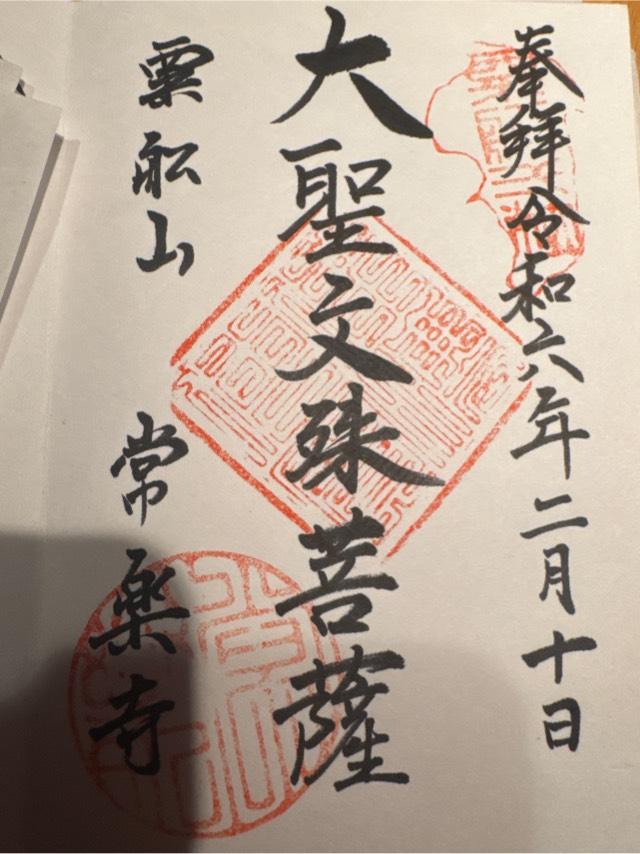 奉拝令和六年二月十日
大聖文殊菩薩
粟船山 常楽寺